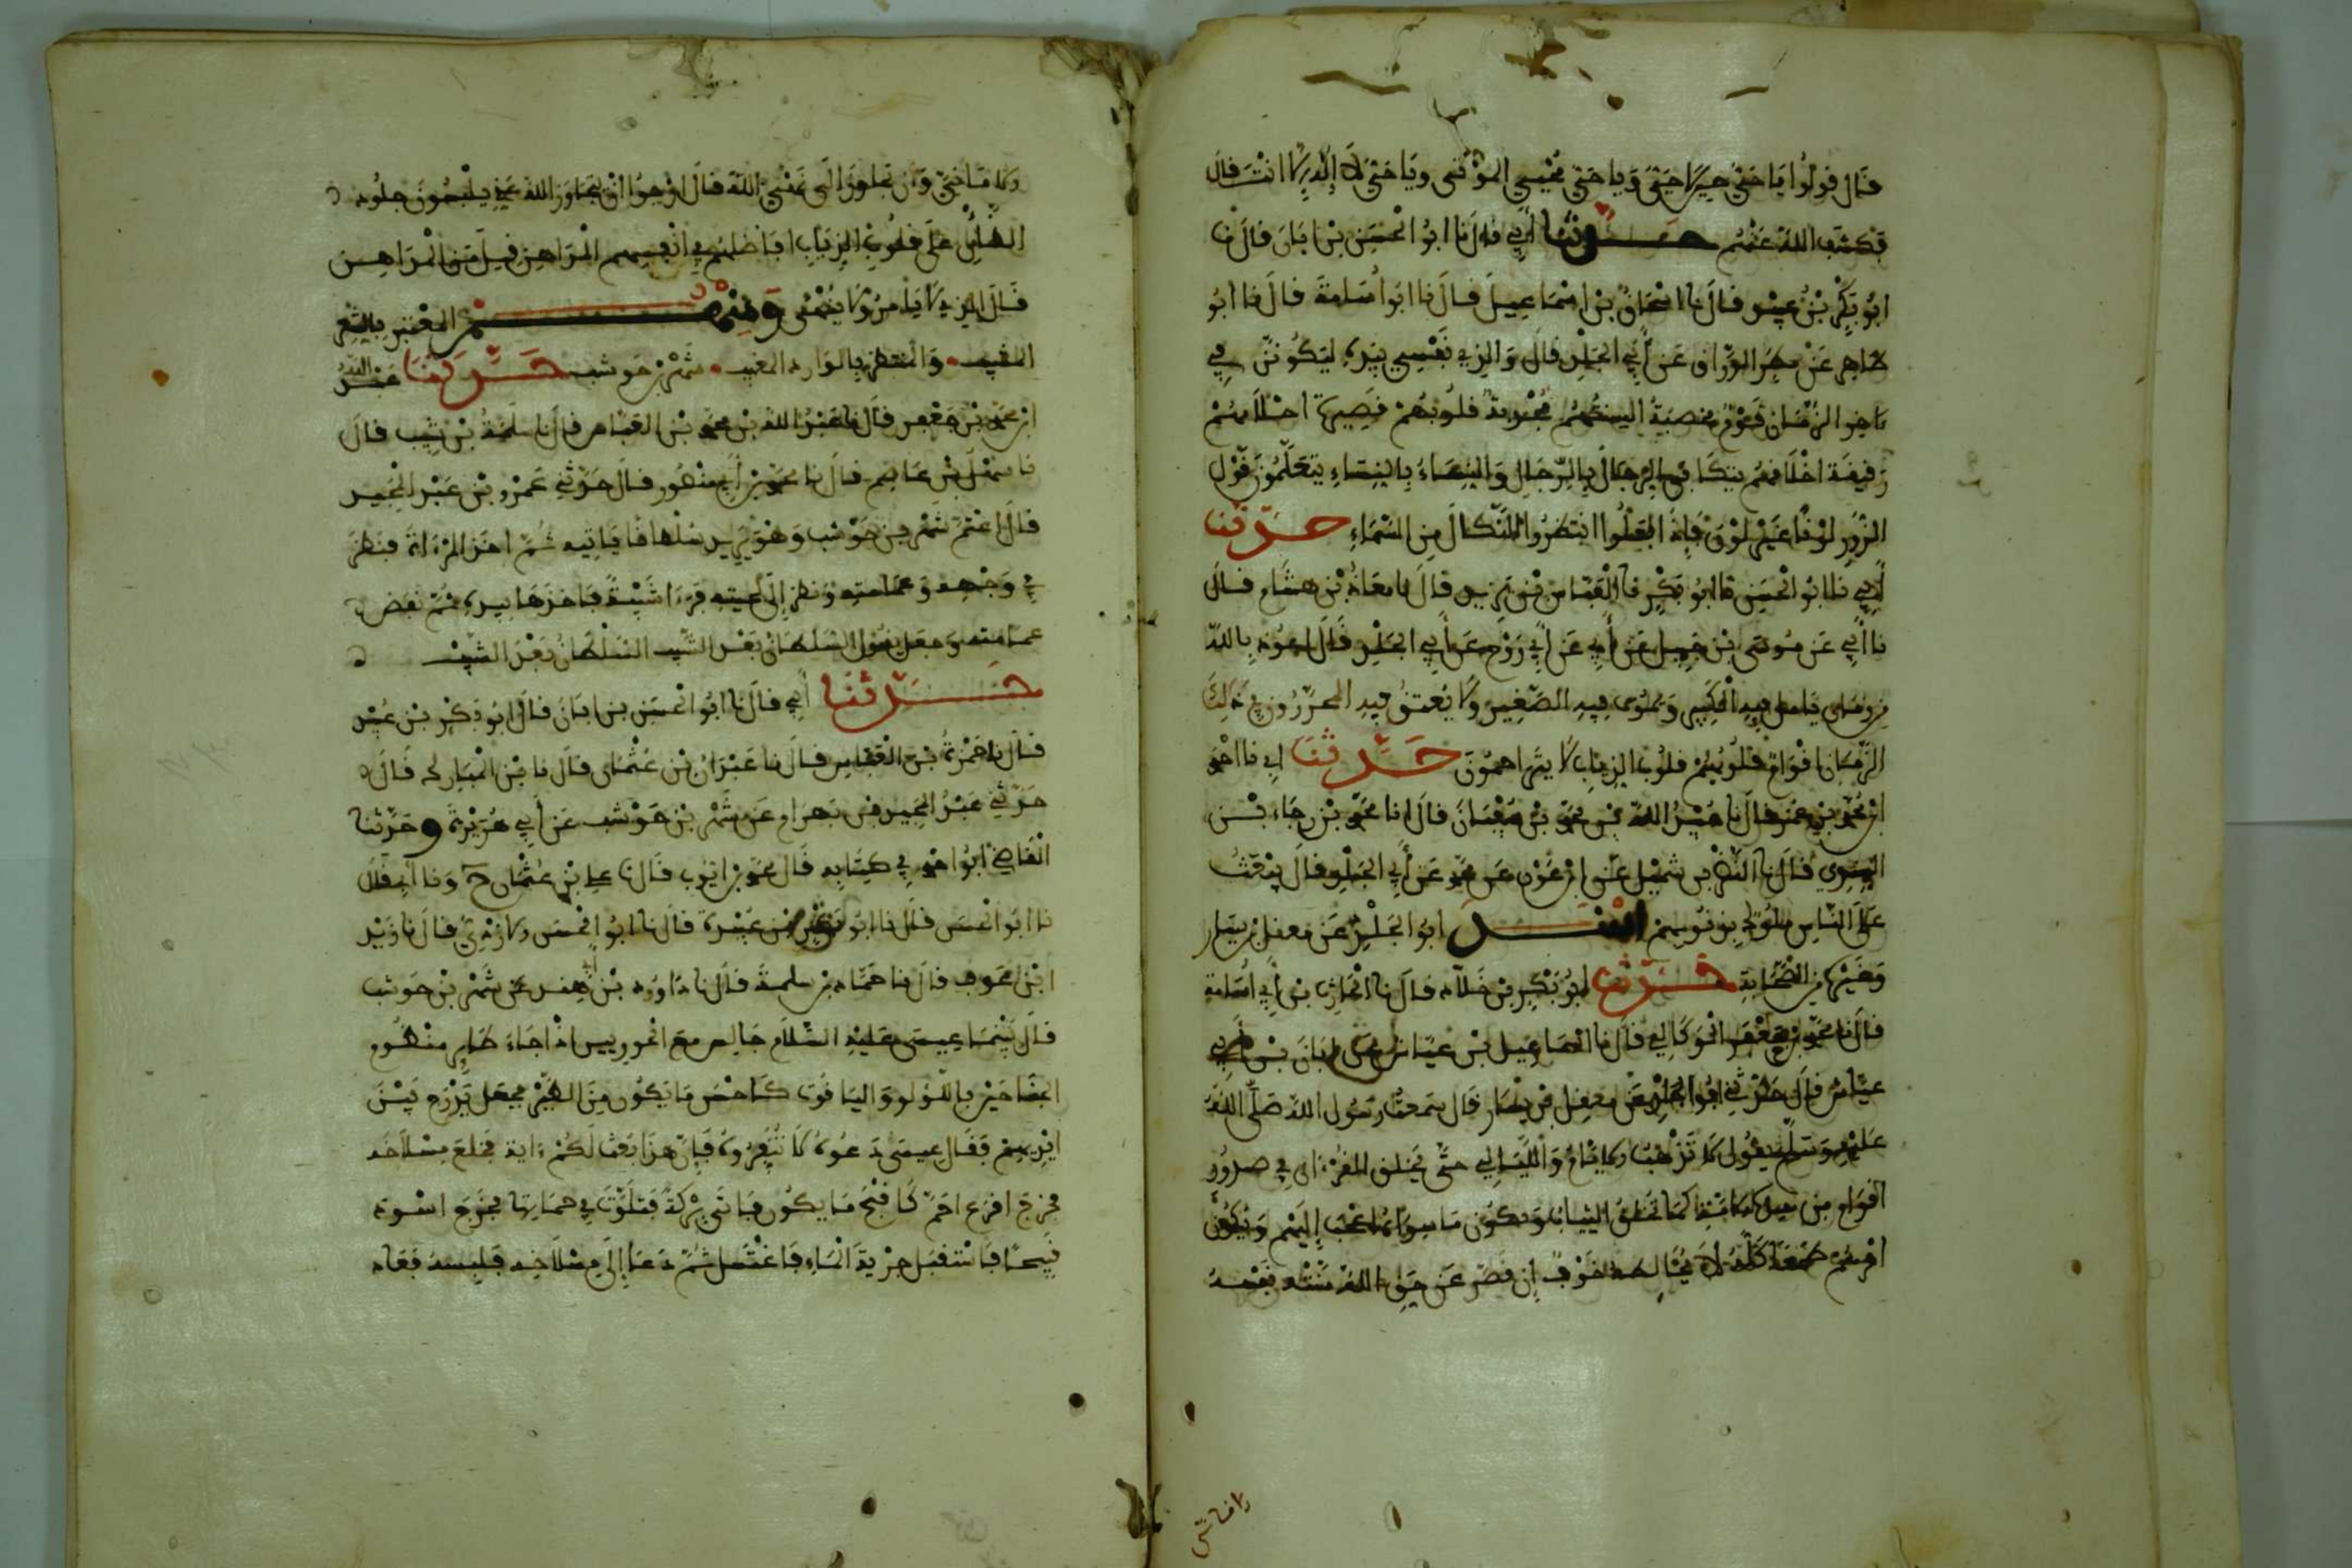 فقال قولوا يا حي حين لا حي ويا حي محيي الموتى ويا حي لا إله إلا انت فقال
فكشف الله عنهم حدثنا أبي قال نا ابو الحسين بن ابان قال نا
ابو بكر بن عبيد قال نا اسحاق بن اسماعيل قال نا ابو أسامة قال نا ابو
طاهر عن مطر الوراق عن أبي الجلد قال والذي نفسي بيده ليكونن في
ءاخر الزمان قوم مخصبة السنتهم مجدبة قلوبهم قصيرة احلامهم
رقيقة اخلاقهم يتكافى الرجال بالرجال والنساء بالنساء يتعلمون قول
الزور لونا غير لون فإذا فعلوا انتظروا النكال من السماء حدثنا
أبي نا ابو الحسين نا ابو بكر نا العباس بن يزيد قال نا معاذ بن هشام قال
نا أبي عن موسى بن جميل عن أبيه عن أبي روح عن أبي الجلد قال اعوذ بالله
من زمان يامل فيه الكبير ويموت فيه الصغير ولا يعتق فيه المحررون في ذالك
الزمان اقوام قلوبهم قلوب الذياب لا يتراحمون حدثنا ابي نا احمد
ابن محمد بن عمر قال نا عبد الله بن محمد بن سفيان قال انا محمد بن رجاء بن
السندي قال نا النضر بن شميل عن ابن عون عن محمد عن أبي الجلد قال يبعث
على الناس ملوك بذنوبهم أسند ابو الجلد عن معقل بن يسار
وغيره من الصحابة حدثنا ابو بكر بن خلاد قال نا الحارث بن أبي أسامة
قال نا محمد بن جعفر الوركاني قال نا اسماعيل بن عياش عن ابان بن أبي
عياش قال حدثني ابو الجلد عن معقل بن يسار قال سمعت رسول الله صلى الله
عليه وسلم يقول لا تذهب الايام والليالي حتى يخلق القرءان في صدور
اقوام من هذه الامة كما تخلق الثياب ويكون ما سواه اعجب إليهم ويكون
امرهم طمعا كله لا يخالطه خوف إن قصر عن حق الله منته نفسه
الاماني
الاماني وان تجاوز الى نهي الله قال ارجوا ان يتجاوز الله عني يلبسون جلود
الضأن على قلوب الذياب افاضلهم في انفسهم المداهن قيل من المداهن
قال الذي لا يامر ولا ينهى ومنهم المعتبر بالشعر
المشيب والمنتظر بالوارد المغيب شهر بن حوشب حدثنا عبد الله
ابن محمد بن جعفر قال نا عبد الله بن محمد بن العباس قال نا سلمة بن شبيب قال
نا سهل بن عاصم قال نا محمد بن أبي منصور قال حدثني عمرو بن عبد الحميد
قال اعتم شهر بن حوشب وهو يريد سلطانا ياتيه ثم اخذ المرءاة فنظر
في وجهه وعمامته ونظر إلى لحيته فرءا شيبة فاخذها بيده ثم نقض
عمامته وجعل يقول السلطان بعد الشيب السلطان بعد الشيب
حدثنا أبي قال نا ابو الحسين بن ابان قال نا ابو بكر بن عبيد
قال نا حمزة بن العباس قال نا عبدان بن عثمان قال نا بن المبارك قال
حدثني عبد الحميد بن بهرام عن شهر بن حوشب عن أبي هريرة وحدثنا
القاضي ابو احمد في كتابه قال نا محمد بن ايوب قال نا علي بن عثمان ح ونا أبي قال
نا ابو الحسن قال نا ابو بكر بن عبيدة قال نا ابو الحسن الازدي قال نا زيد
ابن عوف قال نا حماد بن سلمة قال نا داوود بن أبي هند عن شهر بن حوشب
قال بينما عيسى عليه السلام جالس مع الحواريين اذ اجاء طاير منظوم
الجناحين باللؤلؤ والياقوت كاحسن ما يكون من الطير فجعل يدرج بين
ايديهم فقال عيسى دعوه لا تنفروه فإن هذا بعث لكم ءاية فخلع مسلاخه
فخرج اقرع احمر كاقبح ما يكون فاتى بركة فتلوث في حمأتها فخرج اسود
قبيحا فاستقبل جرية الماء فاغتسل ثم دعا إلى مسلاخه فلبسه فعاد